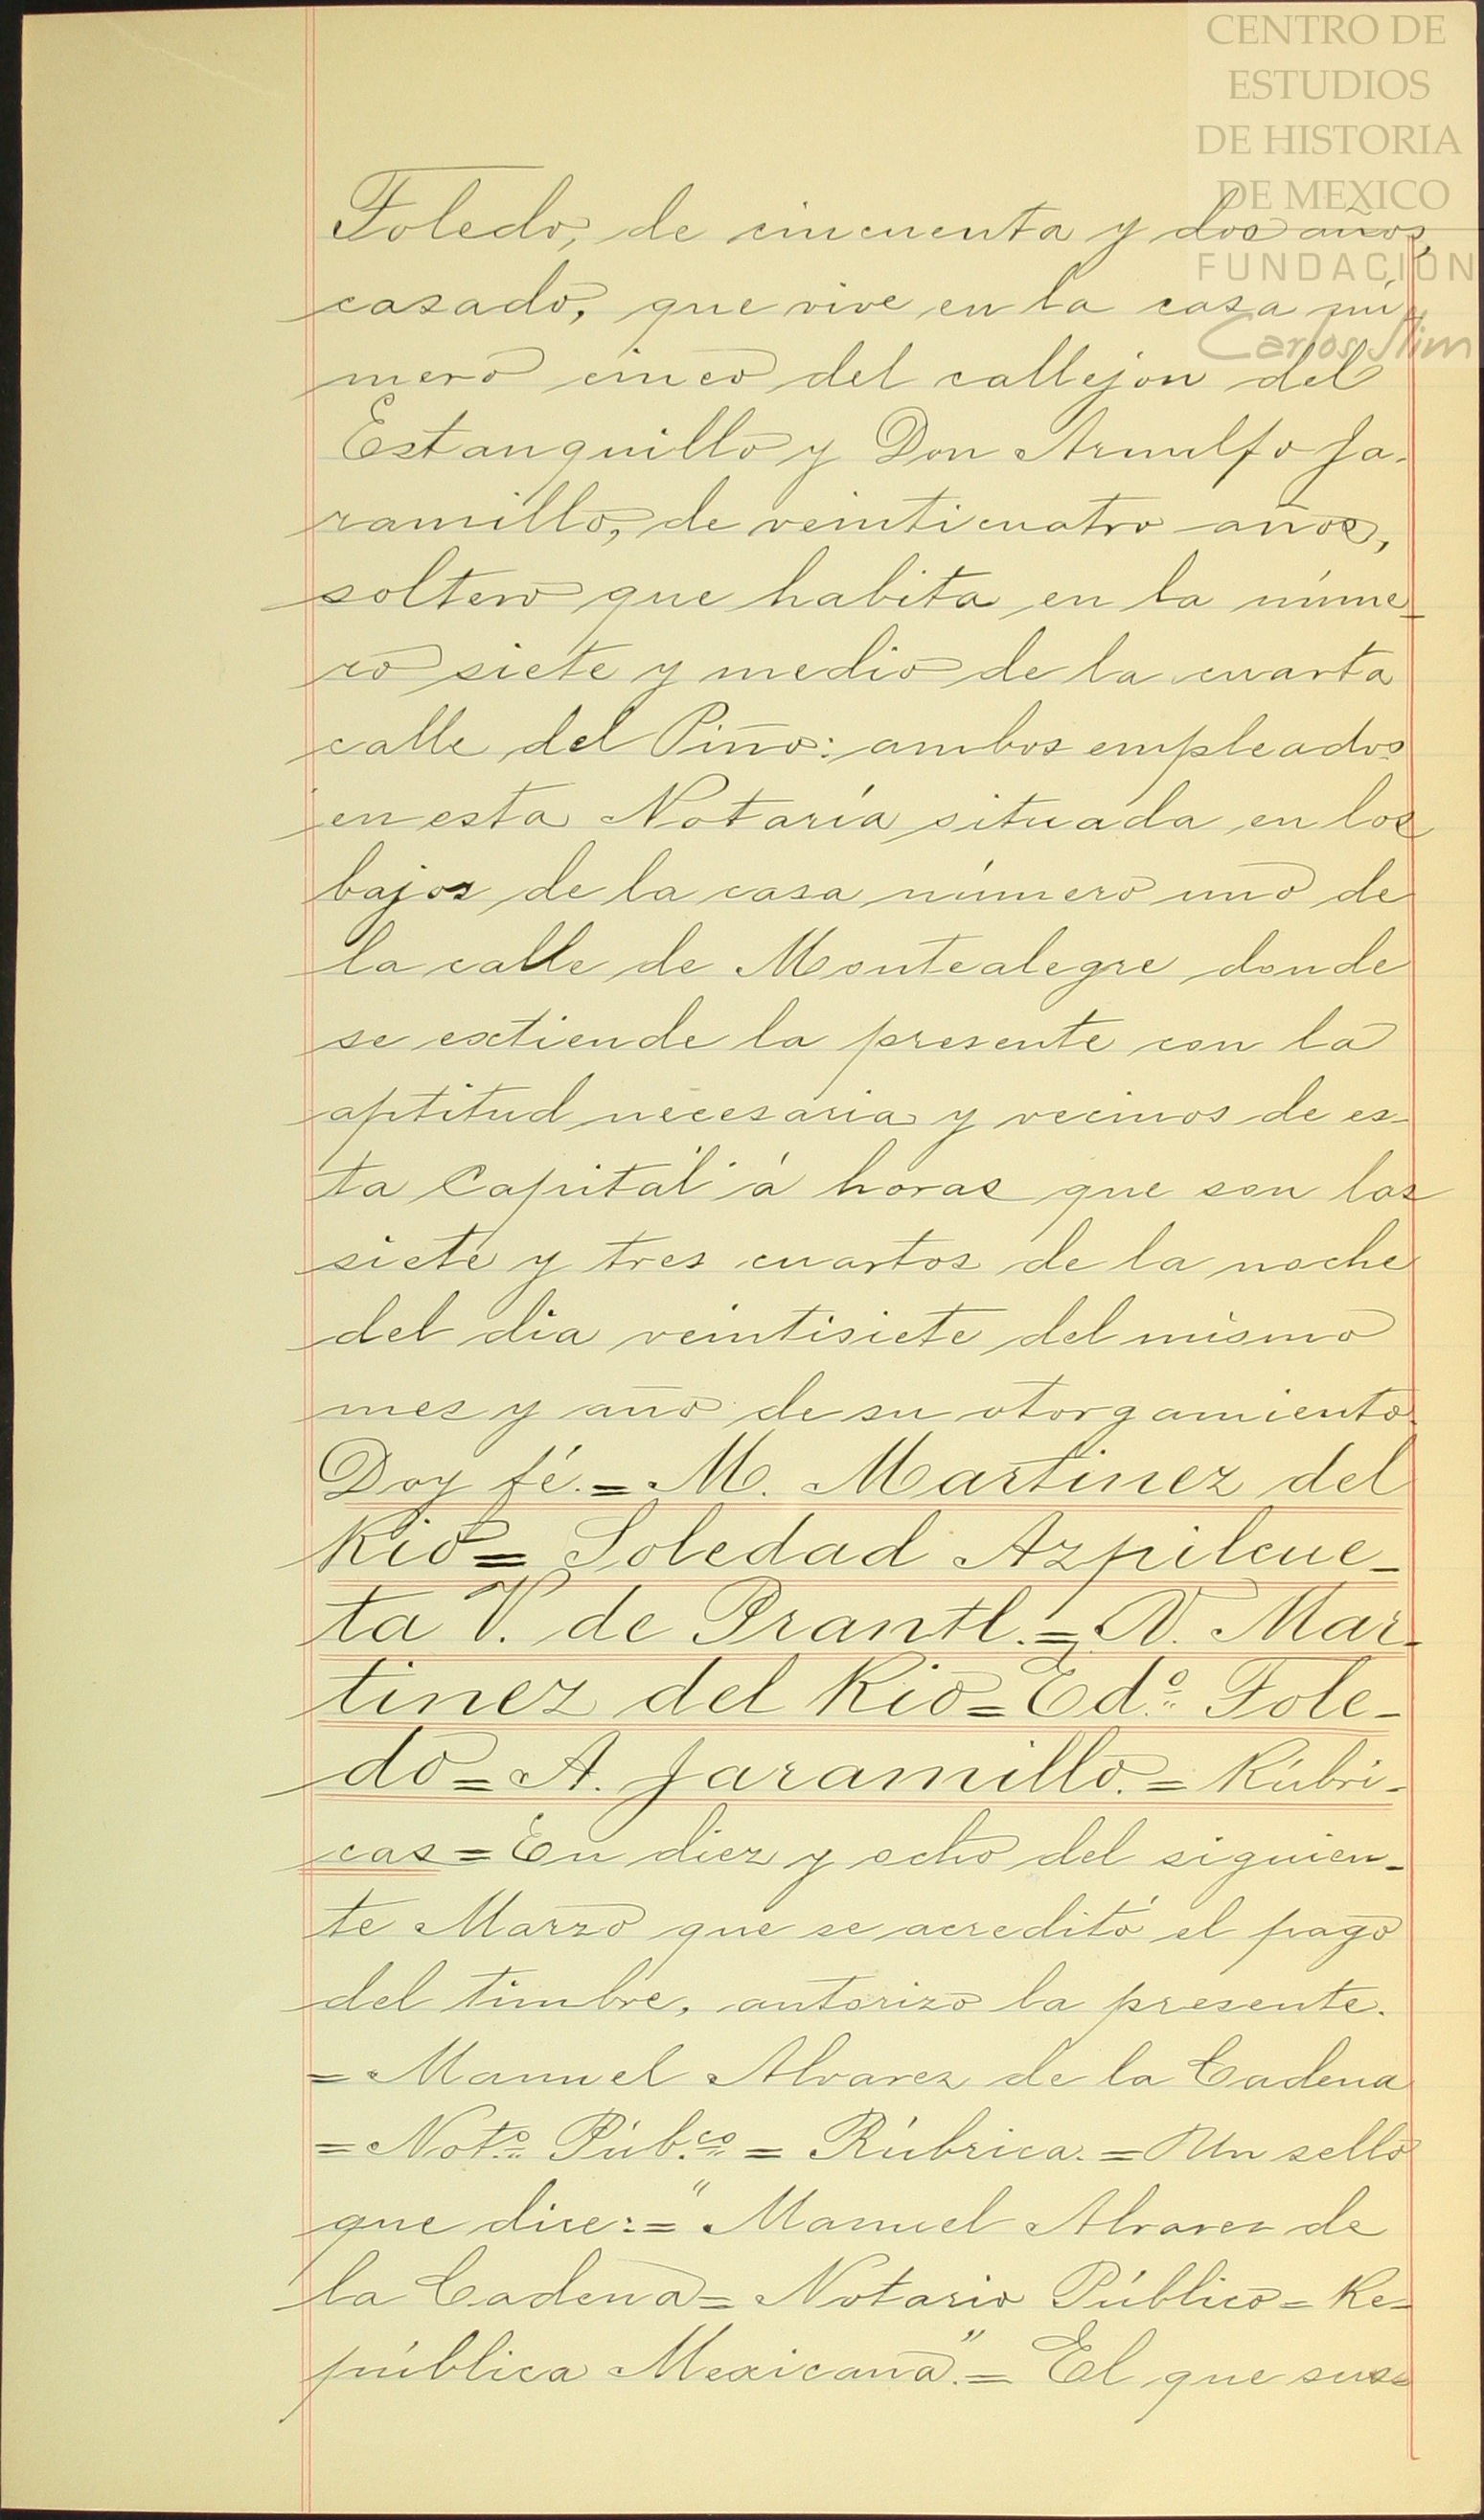 CENTRO DE
ESTUDIOS
DE HISTORIA
DE MEXICO
FUNDACIÓN
Carlos Slim
Toledo, de cincuenta y dos años,
casado, que vive en la casa nú-
mero cinco del callejon del
Estanquillo y Don Arnulfo Ja-
ramillo, de veinticuatro años,
soltero que habita en la núme-
ro siete y medio de la cuarta
calle del Pino: ambos empleados
en esta Notaría situada en los
bajos de la casa número uno de
la calle de Montealegre donde
se extiende la presente con la
aptitud necesaria y vecinos de es-
ta Capital á horas que son las
siete y tres cuartos de la noche
del dia veintisiete del mismo
mes y año de su otorgamiento.
Doy fé.= M. Martinez del
Rio= Soledad Azpilcue-
ta V. de Prantl.= N. Mar-
tinez del Rio= Ed.º Tole-
do= A. Jaramillo.= Rúbri-
cas= En diez y ocho del siguien-
te Marzo que se acreditó el pago
del timbre, autorizo la presente.
= Manuel Alvarez de la Cadena
= Not.º Púb.co = Rúbrica.= Un sello
que dice:=" Manuel Alvarez de
la Cadena= Notario Público= Re-
pública Mexicana".= El que sus-